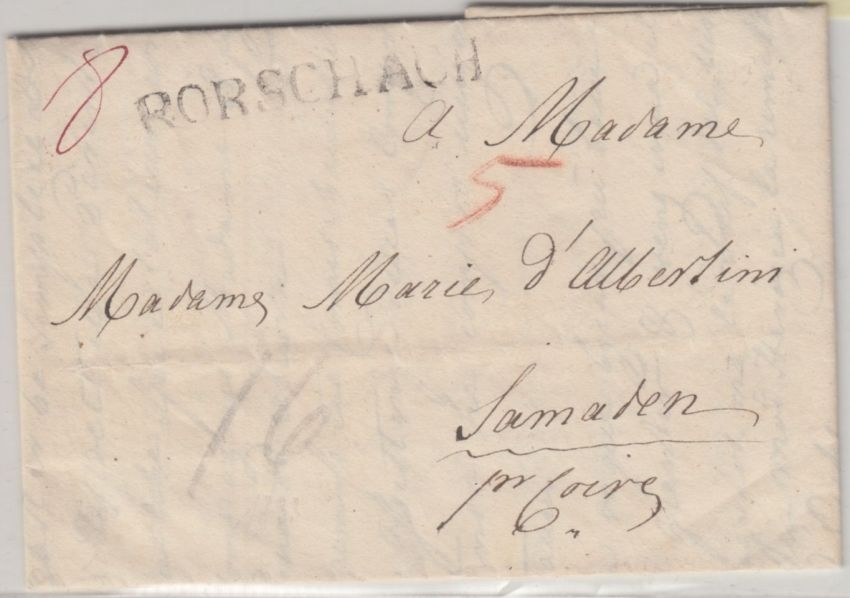 8
RORSCHACH
a Madame
5
Madame Marie d'Albertini
16
Samaden
pr Coire